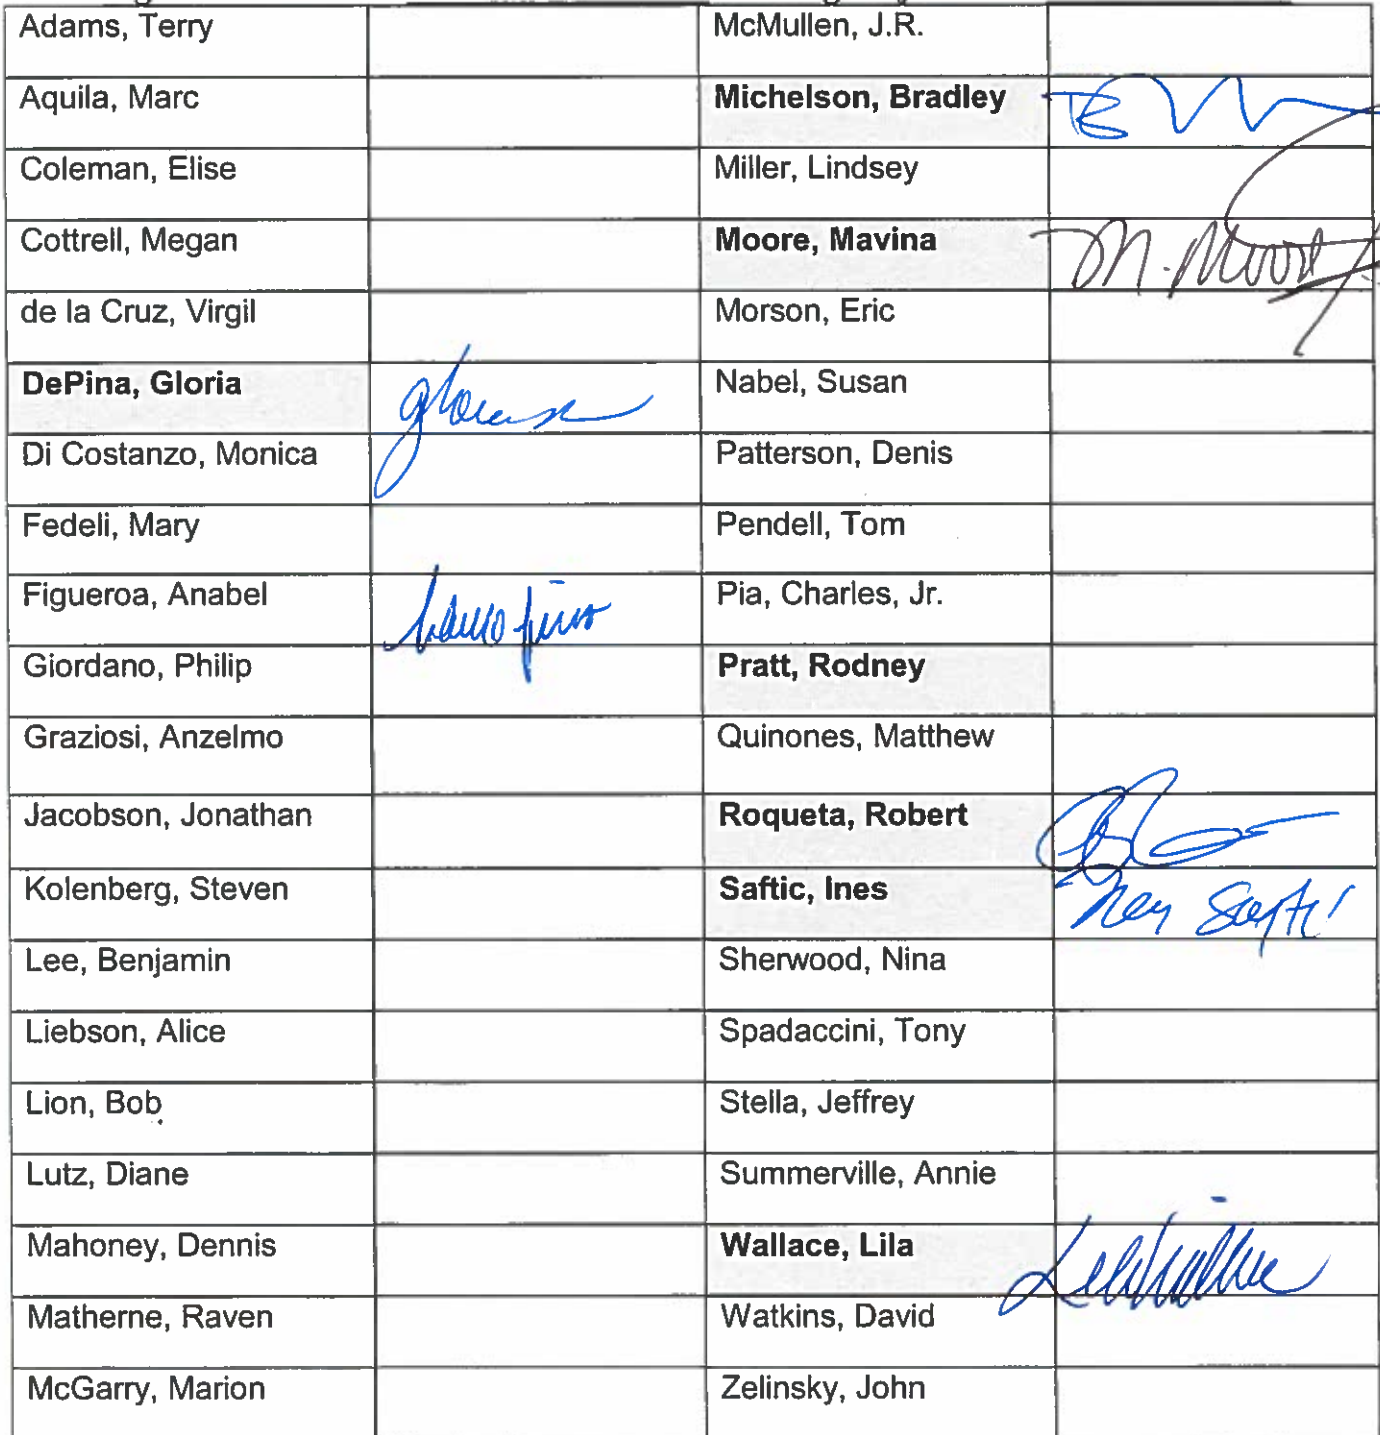 Adams, Terry McMullen, J.R.
Aquila, Marc Michelson, Bradley
Coleman, Elise Miller, Lindsey
Cottrell, Megan Moore, Mavina M. Moore
de la Cruz, Virgil Morson, Eric
DePina, Gloria Nabel, Susan
Di Costanzo, Monica Patterson, Denis
Fedeli, Mary Pendell, Tom
Figueroa, Anabel Pia, Charles, Jr.
Giordano, Philip Pratt, Rodney
Graziosi, Anzelmo Quinones, Matthew
Jacobson, Jonathan Roqueta, Robert
Kolenberg, Steven Saftic, Ines
Lee, Benjamin Sherwood, Nina
Liebson, Alice Spadaccini, Tony
Lion, Bob Stella, Jeffrey
Lutz, Diane Summerville, Annie
Mahoney, Dennis Wallace, Lila
Matherne, Raven Watkins, David
McGarry, Marion Zelinsky, John